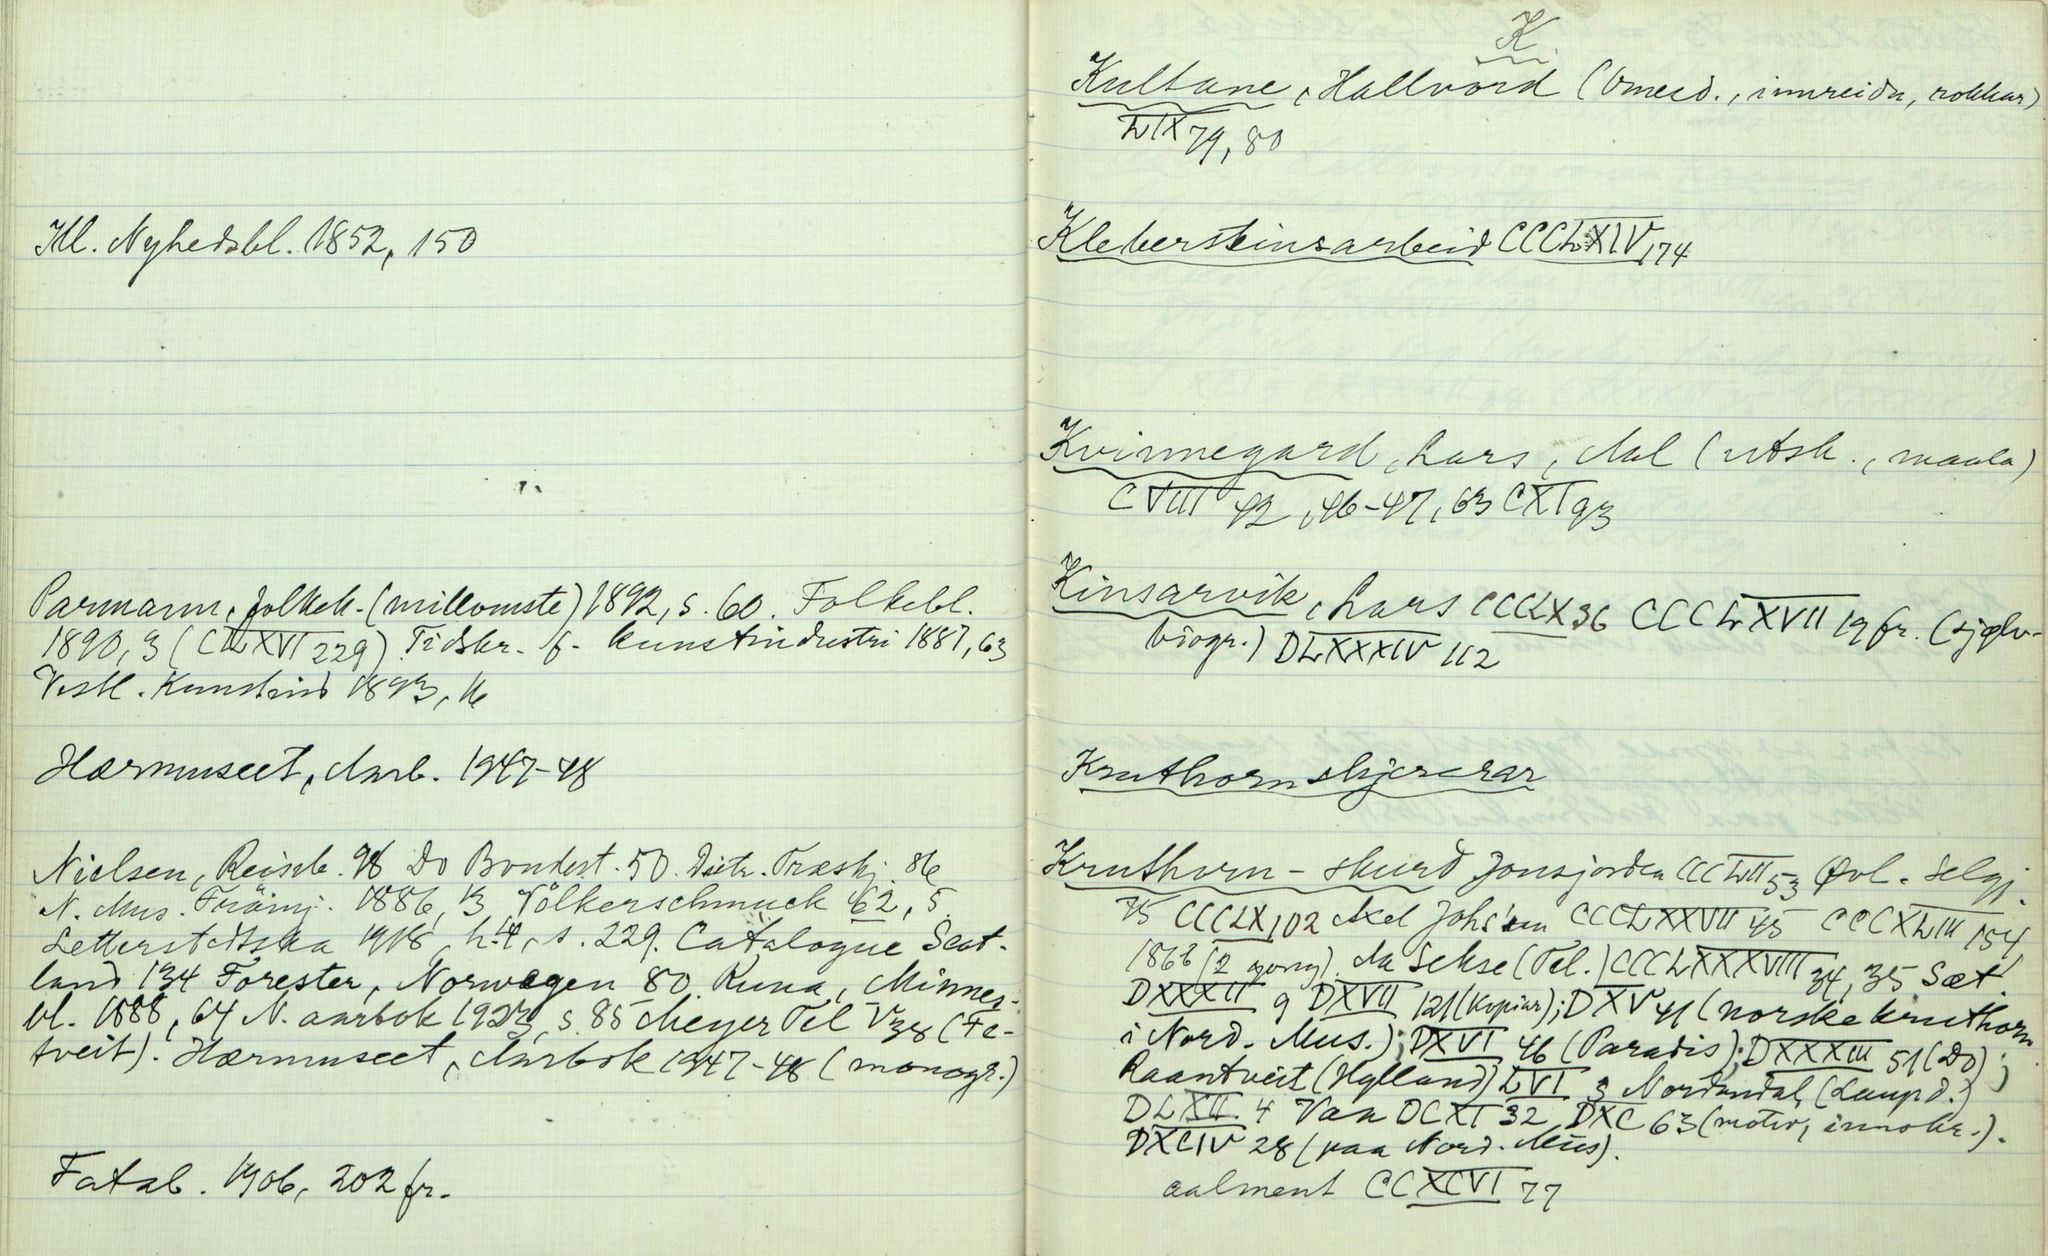 Ill. Nyhedsbl. 1852, 150
Parmann, folkeh. (millomste) 1892, s. 60. Folkebl.
1890, 3 (CLXVI 229) Tidskr. f. kunstindustri 1887, 63
Vestl. Kunstind 1893, 16
Hærmuseet, Aarb. 1947-48
Nielsen, Reiseh. 98 Do Bondest. 50. Dietr. Træskj. 86
N. Mus. Främj. 1886, 13 Völkerschmuck 62, 5
Letterstedtska 1918, h. 4, s. 229. Catalogue Scot-
land 134 Forester, Norwegen 80. Runa, Minnes-
bl. 1888, 64 N. aarbok 1923, s. 85 Meyer Tel V 38 (Fe-
tveit). Hærmuseet, Aarbok 1947-48 (monogr.)
Fatab. 1906, 202 fr.
K
Kultane, Hallvord (Vmeed., innreidn, rokkar)
LIX 79, 80
Klebersteinsarbeid CCCLXIV 174
Kvinnegard, Lars, Aal (utsk., maala)
CVIII 42, 46-47, 63 CXI 93
Kinsarvik, Lars CCCLX 36 CCCLXVII 19 fr. (sjølv-
biogr.) DLXXXIV 112
Kruthornskjerarar
Kruthorn-skurd Jonsjorden CCCLII 53 Øvl. Selgj.
75 CCCLX 102 Axel Johs'en CCCLXXVII 45 CCCXLIII 154
1863 (2 gong) Aa Sekse (Tel.) CCCLXXXVIII 34, 35 Sæt.
DXXXII 9 DXVII 121 (kopiar); DXV 41 (norske kruthorn
i Nord. Mus.); DXVI 46 (Paradis); DXXXIII 51 (Do);
Raantveit (Hylland) LVI 3 Nordendal, (Laupd.)
DLXII 4 Vaa DCXI 32 DXC 63 (motiv, innskr.).
DXCIV 28 (paa Nord. Mus).
aalment CCXCVI 77